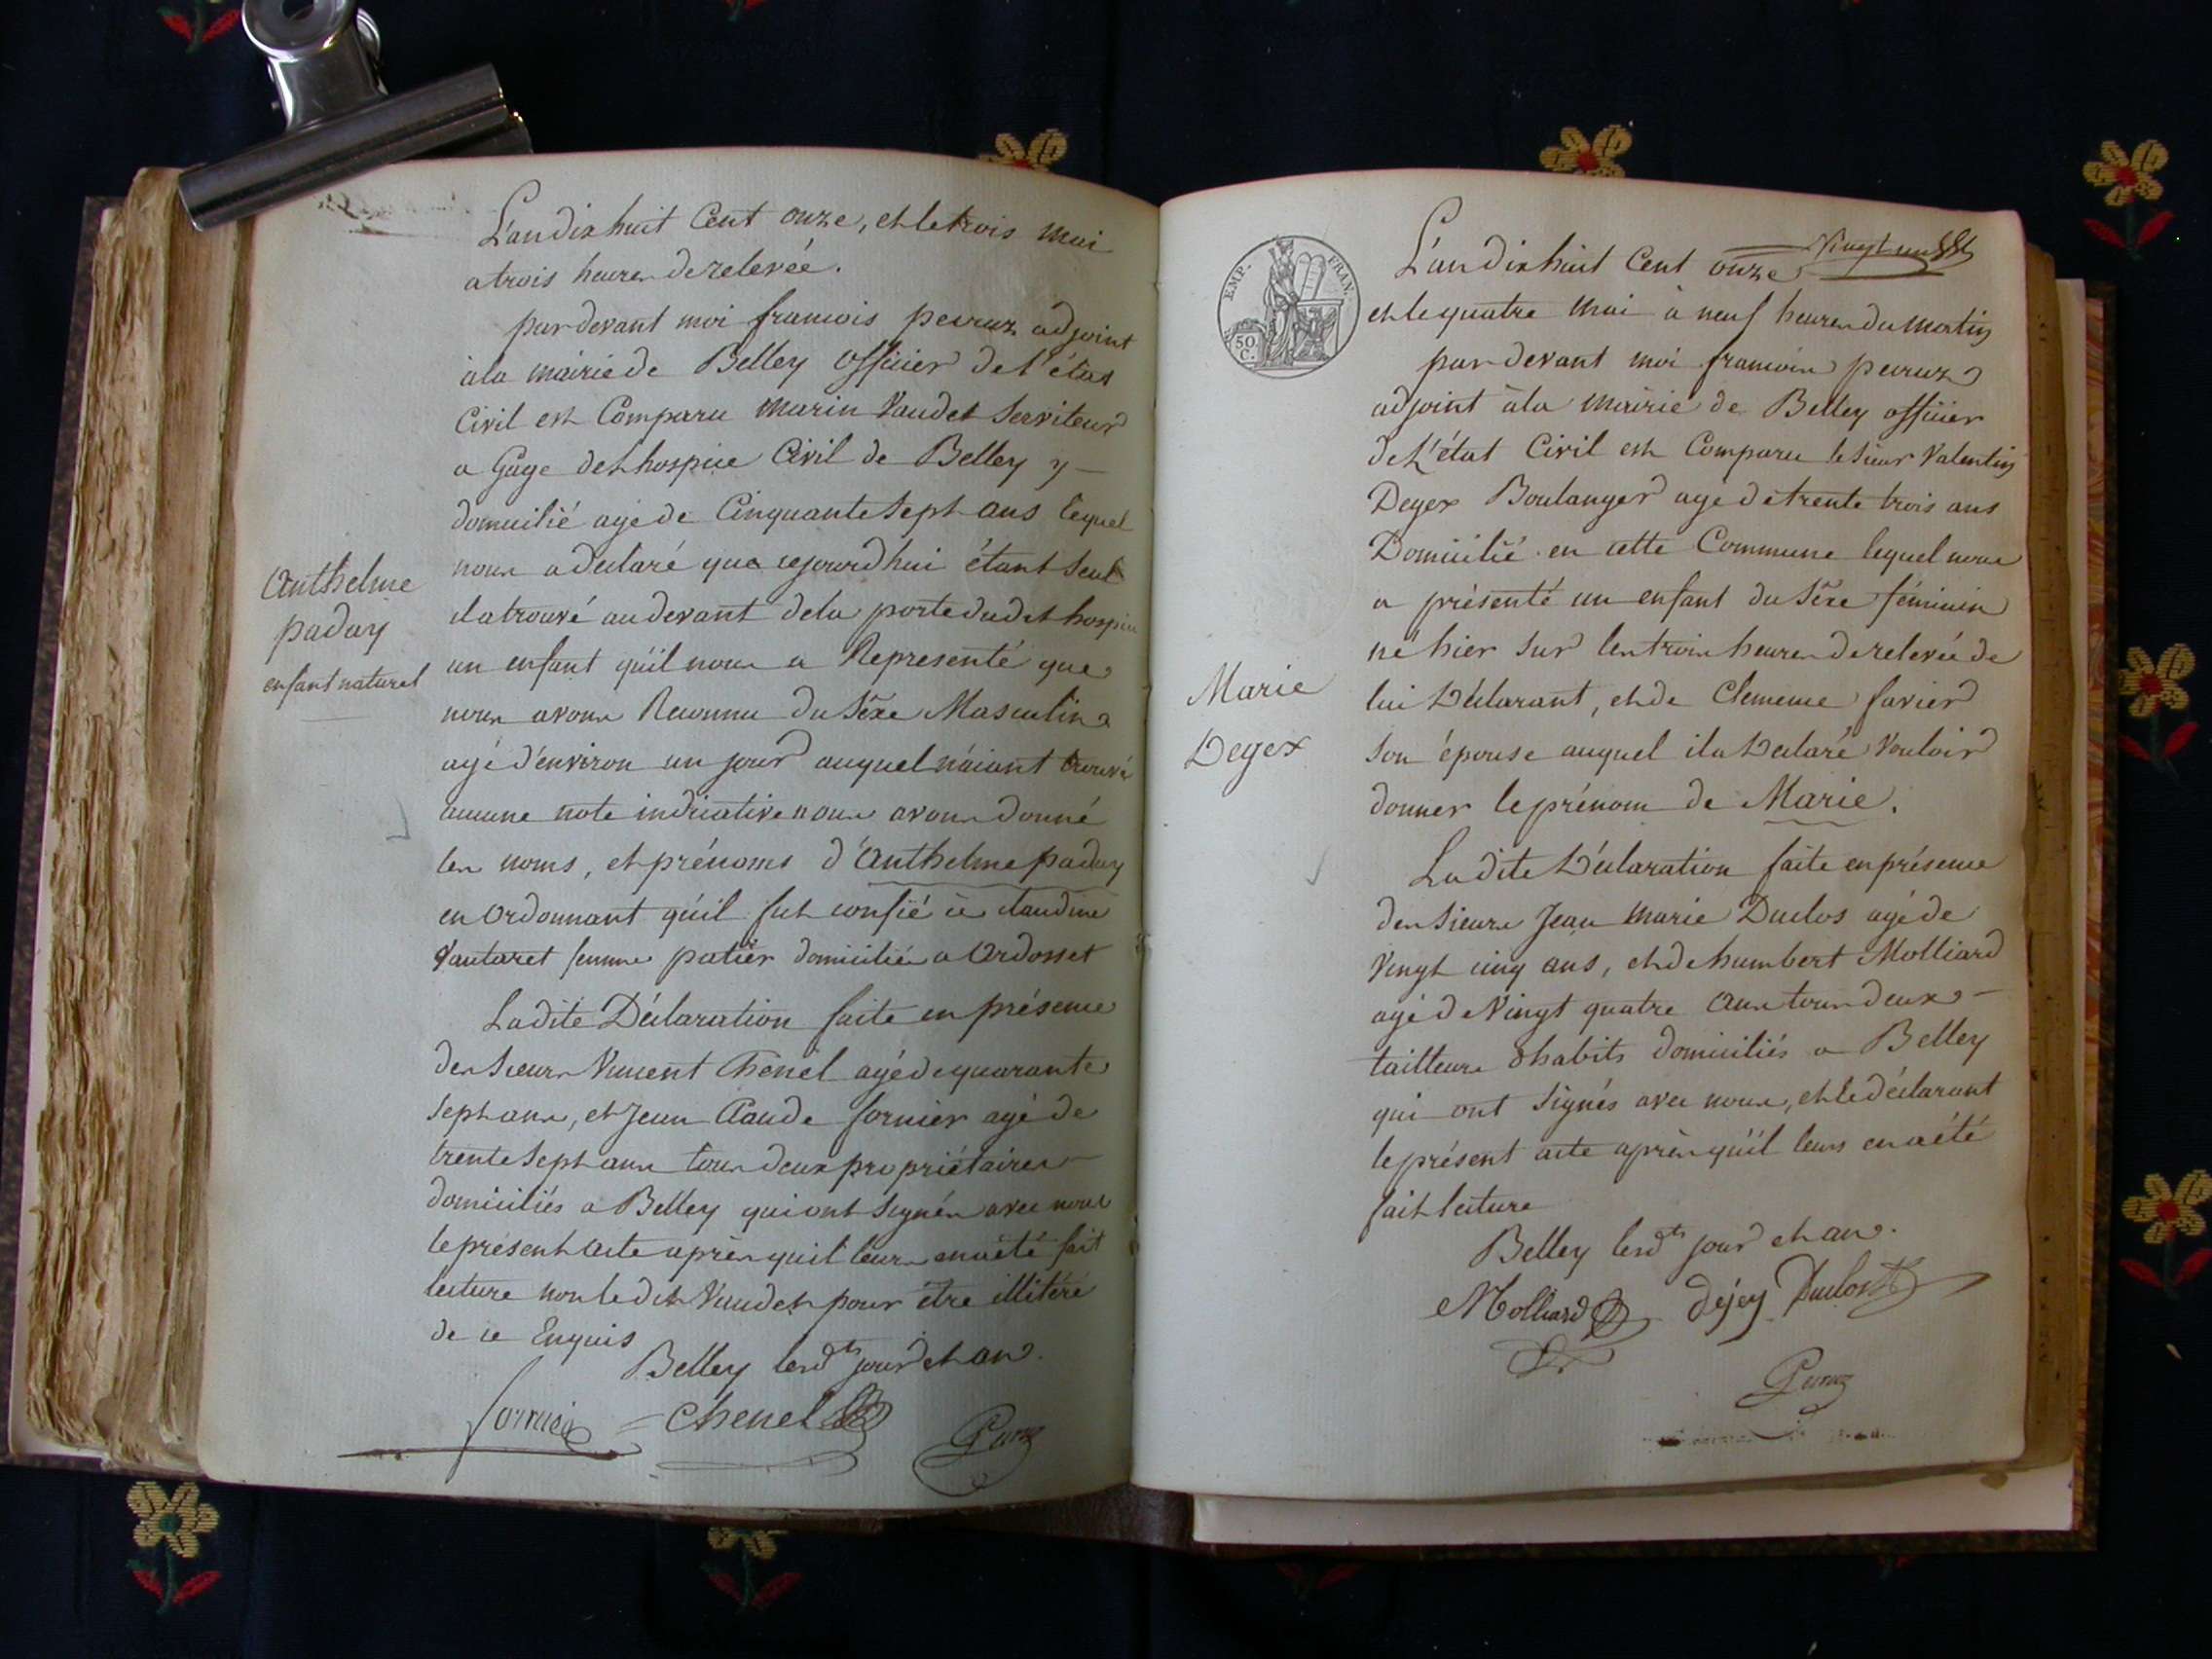 L'an dix huit Cent onze, et le trois mai
a trois heures de relevée.
pardevant moi francois peuruz adjoint
à la mairie de Belley officier de l'état
Civil est Comparu Marin Vaudet Serviteur
a Gage de l'hospice Civil de Belley y
domicilié agé de Cinquante Sept ans lequel
nous a declaré que cejourd'hui étant Seul
il a trouvé au devant de la porte dudit hospice
un enfant qu'il nous a Representé que
nous avons Reconnu du Séxe Masculin
agé d'environ un jour auquel n'aiant trouvé
aucune note indicative nous avons donné
les noms, et prénoms d'Anthelme paday
en Ordonnant qu'il fut confié à claudine
Vautaret femme patier domiciliée a Ordonset
La dite Déclaration faite en présence
des Sieurs Vincent Chenel agé de quarante
Sept ans, et Jean Claude fornier agé de
trente Sept ans tous deux propriétaires
domiciliés a Belley qui ont Signés avec nous
le présent acte après quil leurs en a été fait
lecture non le dit Vaudet pour être illitéré
de ce Enquis
Belley lesdts jour et an.
fornier Chenel
Anthelme
paday
enfant naturel
EMP. FRAN.
50
C.
L'an dix huit Cent onze
et le quatre mai à neuf heures du matin
par devant moi francois peuruz
adjoint à la mairie de Belley officier
de l'état Civil est Comparu le sieur Valentin
Degex Boulanger agé de trente trois ans
Domicilié en cette Commune lequel nous
a présenté un enfant du Séxe féminin
né hier sur les trois heures de relevée de
lui Déclarant, et de Clemence favier
son épouse auquel il a Declaré Vouloir
donner le prénom de Marie.
La dite Déclaration faite en présence
des Sieurs Jean Marie Duclos agé de
Vingt cinq ans, et de humbert Molliard
agé de Vingt quatre ans tous deux
tailleurs d'habits domiciliés a Belley
qui ont signés avec nous, et le déclarant
le présent acte après qu'il leurs en a été
fait lecture
Belley lesdts jour et an.
Molliard déjey Duclos
Marie
Degex